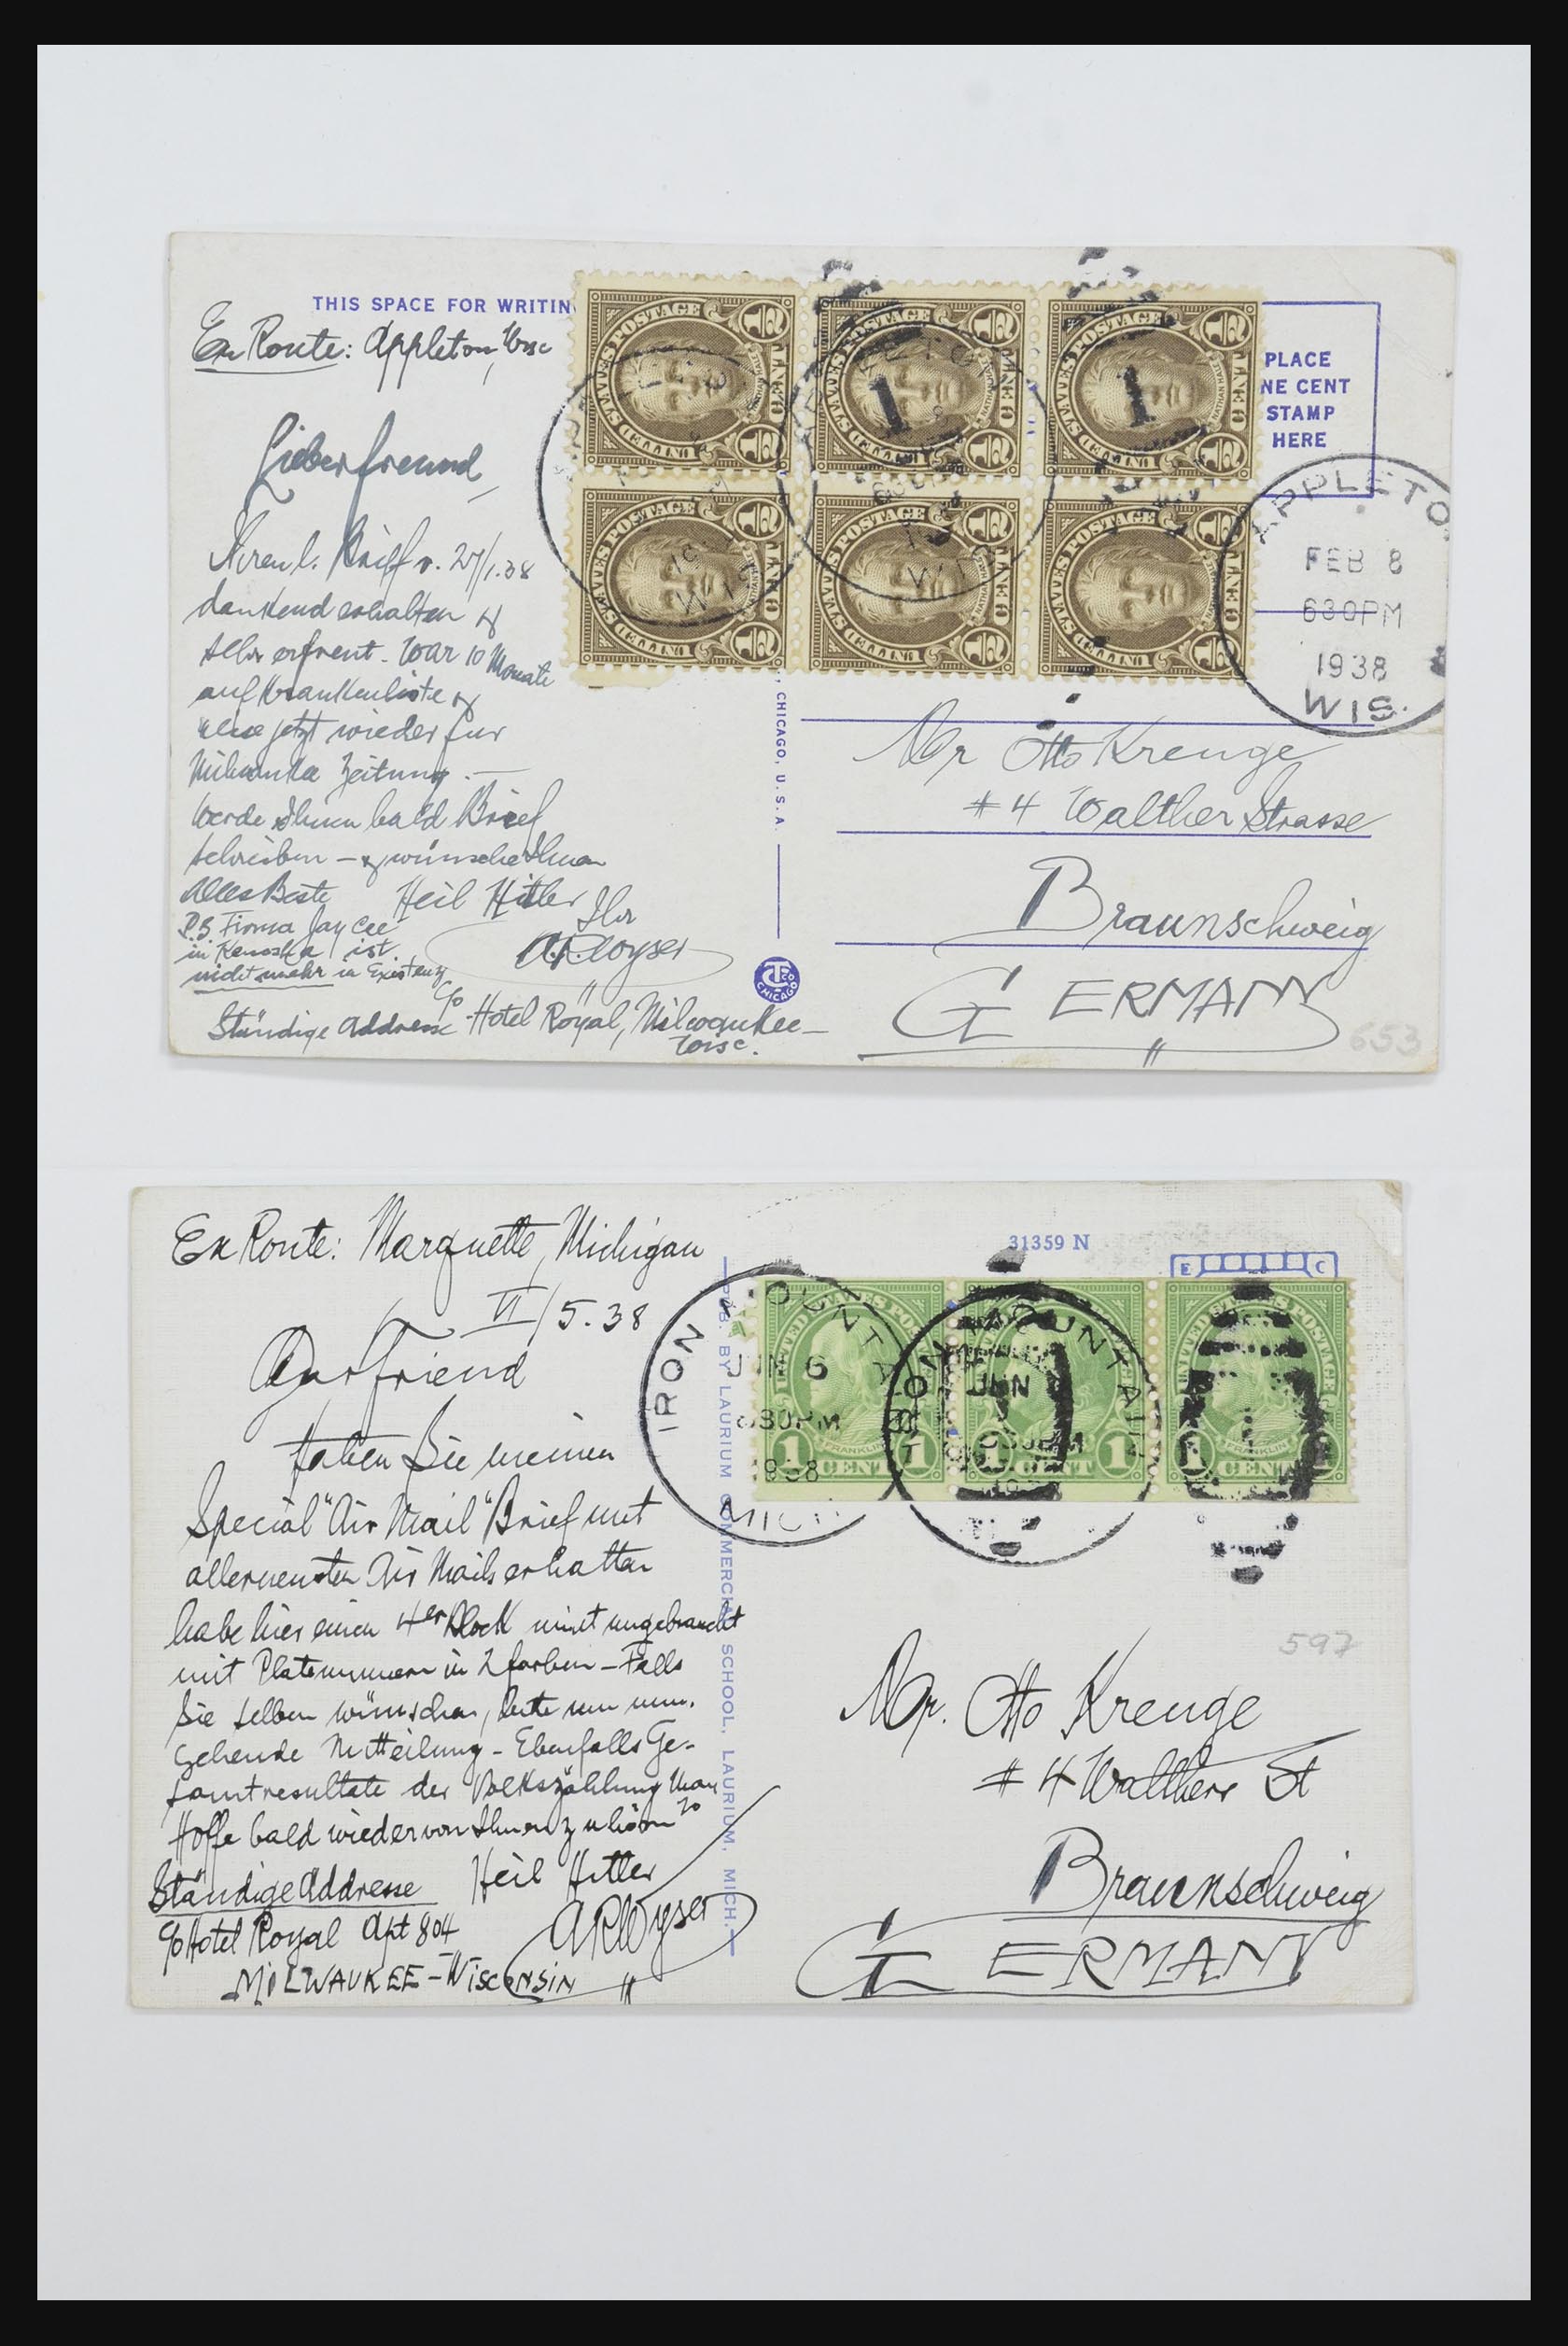 THIS SPACE FOR WRITIN
En Route: Appleton, Wisc
Lieber freund,
Ihren l. Brief v. 27/1.38
dankend erhalten &
sehr erfreut. War 10 Monate
auf Krankenliste &
reise jetzt wieder für
Milwaukee Zeitung. —
Werde Ihnen bald Brief
schreiben — & wünsche Ihnen
Alles Beste Heil Hitler
Ihr
P.S. Firma Jay Cee
in Kenosha ist
nicht mehr in Existenz
Ständige Addresse c/o Hotel Royal, Milwaukee—
Wisc.
UNITED STATES POSTAGE
NATHAN HALE
1/2
PLACE
NE CENT
STAMP
HERE
APPLETO
FEB 8
630PM
1938
WIS.
, CHICAGO, U. S. A.
CT CO
CHICAGO
Mr Otto Krenge
#4 Walther Strasse
Braunschweig
GERMANY
653
En Route: Marquette, Michigan
VI/5.38
Dear friend
Haben Sie meinen
Special "Air Mail" Brief mit
allerneusten Air Mails erhalten
habe hier einen 4er Block mint ungebraucht
mit Platenummern in 2 farben — Falls
Sie selben wünschen, bitte um um-
gehende Mitteilung — Ebenfalls Ge-
samtresultate der Volkszählung Mai
Hoffe bald wieder von Ihnen zu hören
Heil Hitler
Ständige Addresse
c/o Hotel Royal Apt 804
MILWAUKEE — WISCONSIN
PUB. BY LAURIUM COMMERCIAL SCHOOL, LAURIUM, MICH.
31359 N
E C
UNITED STATES POSTAGE
FRANKLIN
1 CENT 1
IRON MOUNTAIN
JUN 6
630PM
1938
MICH.
597
Mr. Otto Krenge
#4 Walther St
Braunschweig
GERMANY